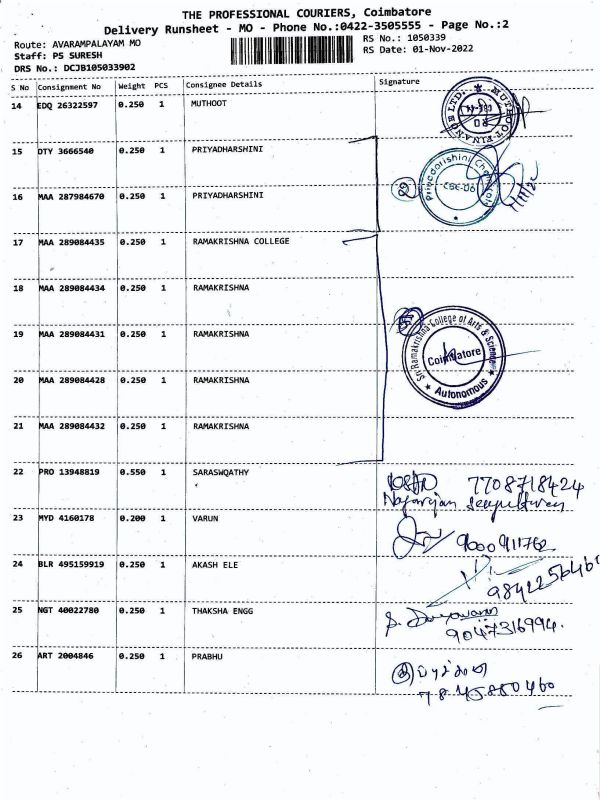 THE PROFESSIONAL COURIERS, Coimbatore
Delivery Runsheet - MO - Phone No.:0422-3505555 - Page No.:2
Route: AVARAMPALAYAM MO
RS No.: 1050339
Staff: P5 SURESH
RS Date: 01-Nov-2022
DRS No.: DCJB105033902
S No Consignment No Weight PCS Consignee Details Signature
14 EDQ 26322597 0.250 1 MUTHOOT
MUTHOOT FINANCE LTD.
RO
15 DTY 3666540 0.250 1 PRIYADHARSHINI
16 MAA 287984670 0.250 1 PRIYADHARSHINI
Priyadarishini
CBE-06
17 MAA 289084435 0.250 1 RAMAKRISHNA COLLEGE
18 MAA 289084434 0.250 1 RAMAKRISHNA
19 MAA 289084431 0.250 1 RAMAKRISHNA
20 MAA 289084428 0.250 1 RAMAKRISHNA
21 MAA 289084432 0.250 1 RAMAKRISHNA
Sri Ramakrishna College of Arts & Science
Coimbatore
Autonomous
22 PRO 13948819 0.550 1 SARASWQATHY 7708718424
Nagarajan
23 MYD 4160178 0.200 1 VARUN 9000911762
24 BLR 495159919 0.250 1 AKASH ELE
25 NGT 40022780 0.250 1 THAKSHA ENGG
9047316994.
26 ART 2004846 0.250 1 PRABHU